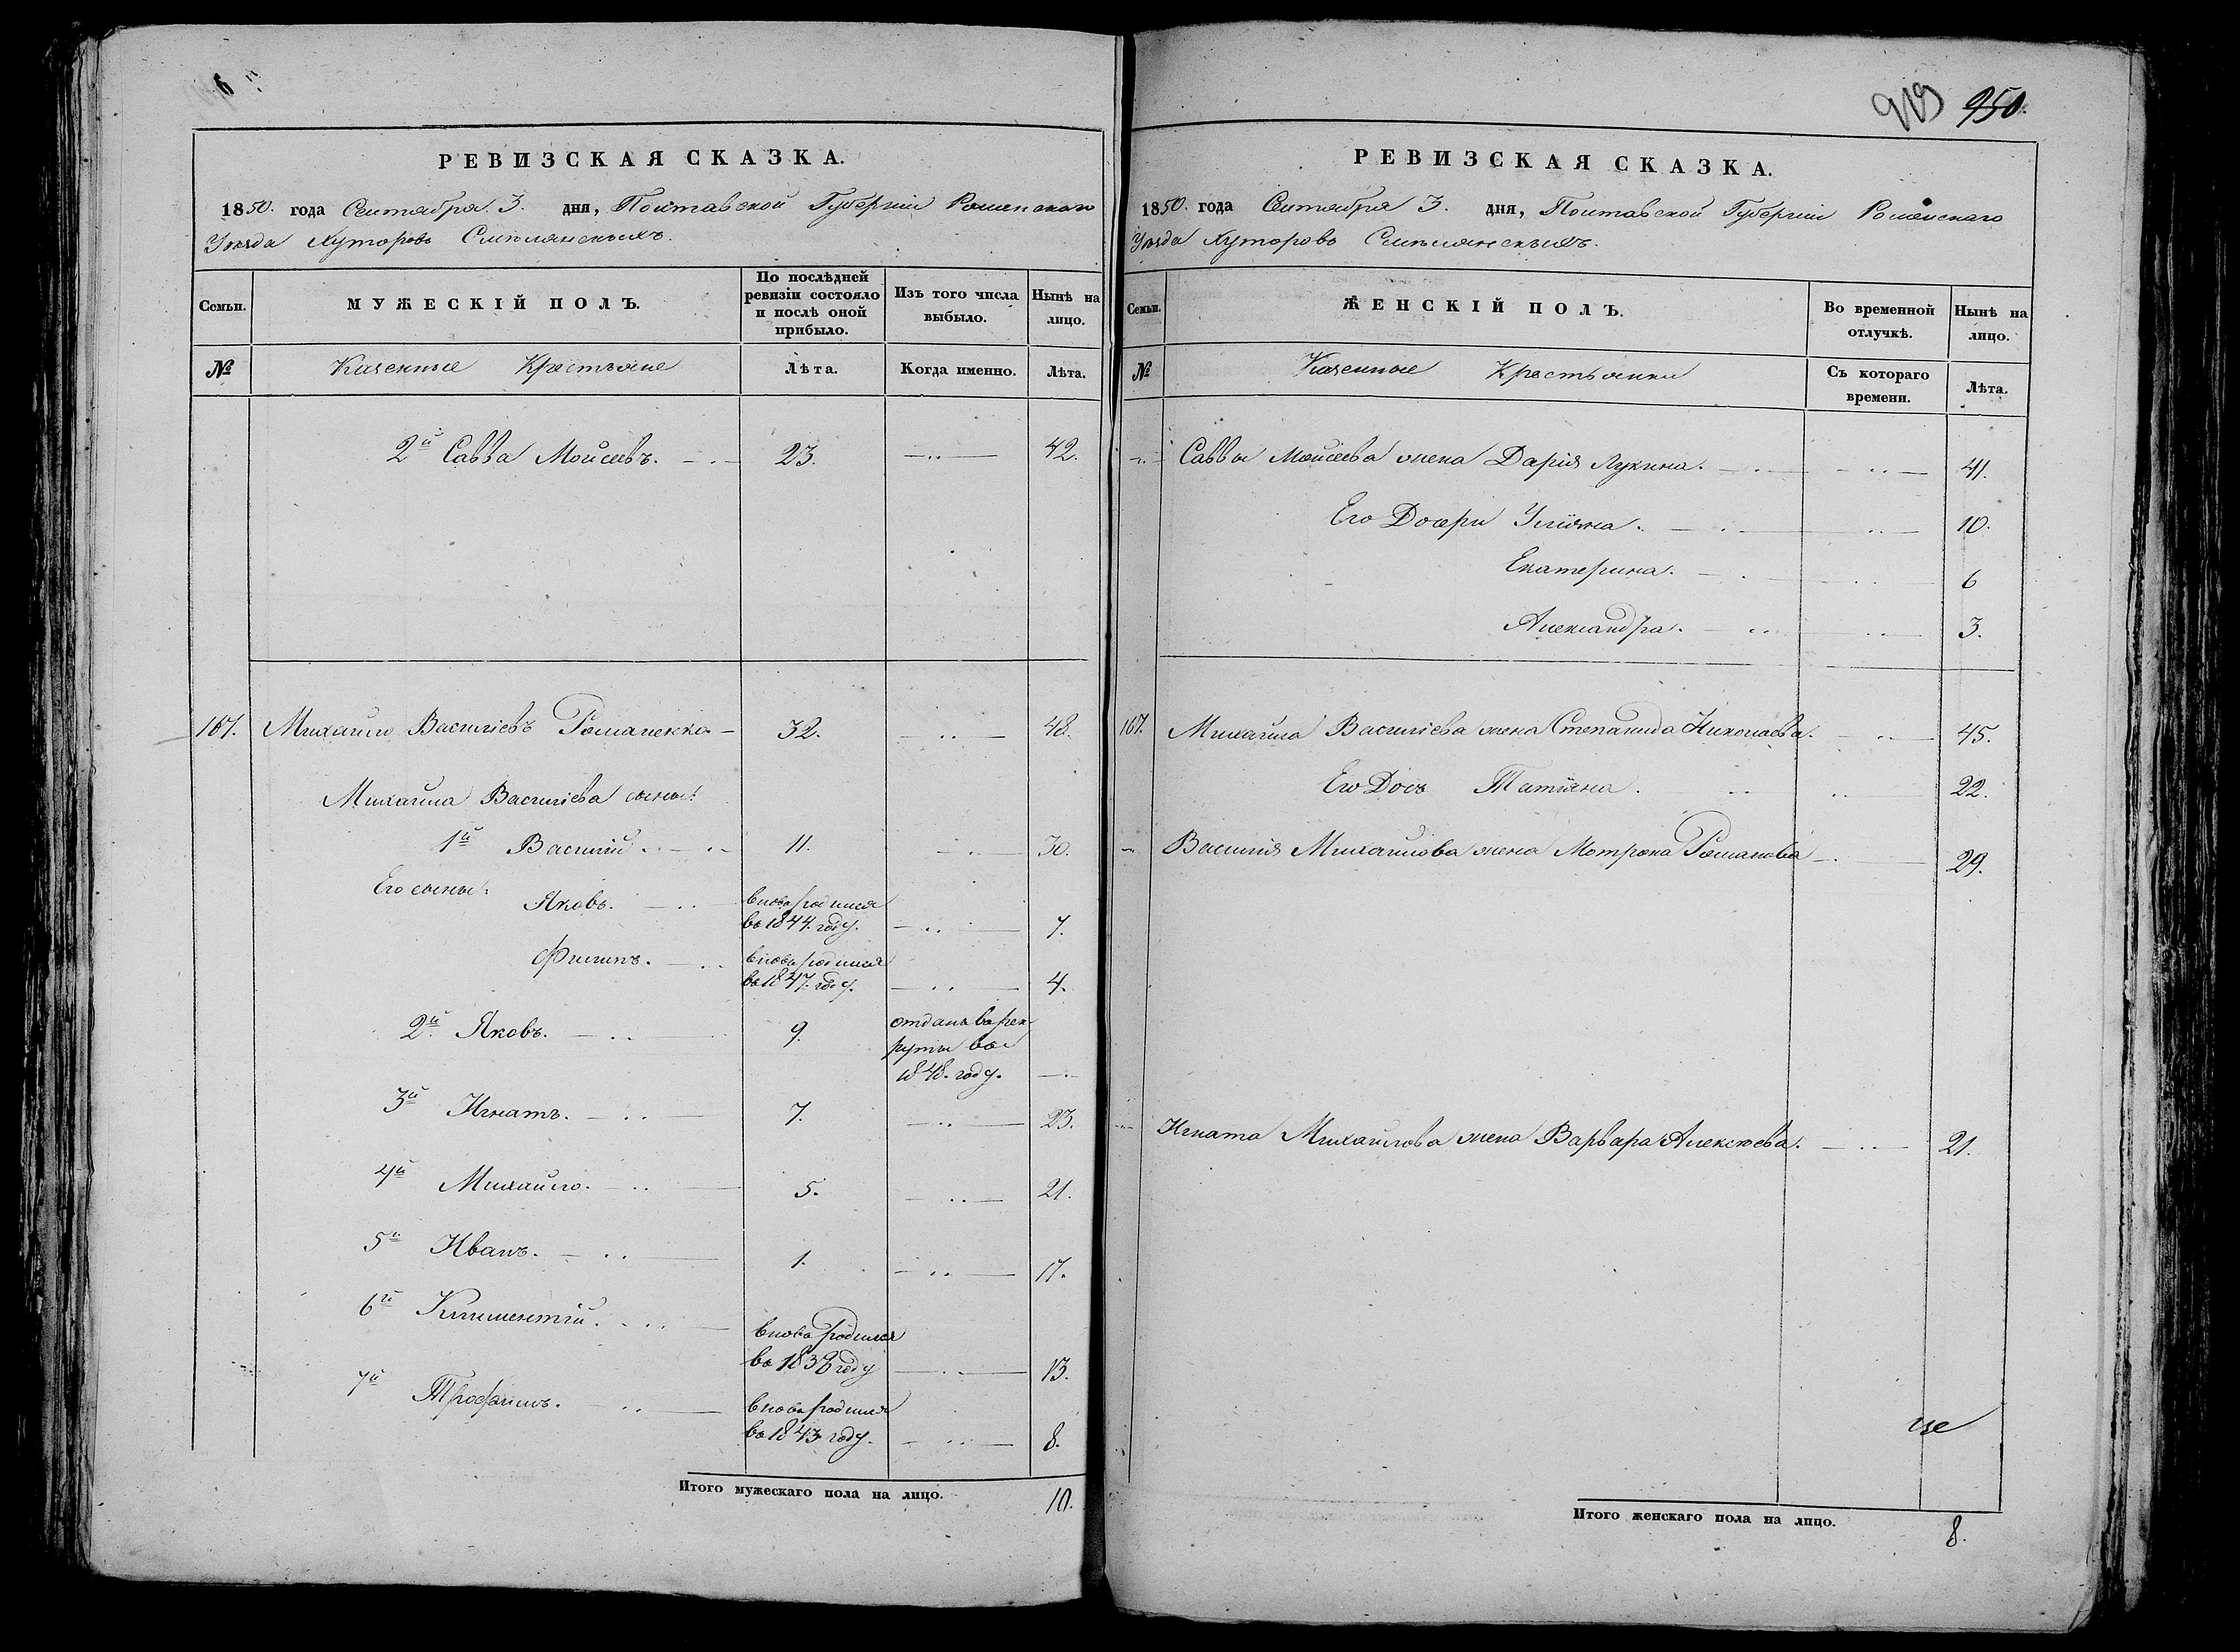 6
РЕВИЗСКАЯ СКАЗКА.
1850. года Сентября 3. дня, Полтавской Губерніи Роменскаго
Уѣзда Хуторовъ Смѣлянскихъ.
Семьи.
МУЖЕСКІЙ ПОЛЪ.
По послѣдней ревизіи состояло и послѣ оной прибыло.
Изъ того числа выбыло.
Нынѣ на лицо.
№
Казенные Крестьяне
Лѣта.
Когда именно.
Лѣта.
2й Савва Моисеевъ. 23. 42.
167. Михайло Василіевъ Романенко 32. 48.
Михайла Василіева сыны:
1й Василій. 11. 30.
Его сыны: Яковъ. вновь родился
въ 1844. году. 7.
Филипъ. вновь родился
въ 1847. году. 4.
2й Яковъ. 9. отданъ в рек-
руты въ
1848. году.
3й Игнатъ. 7. 23.
4й Михайло. 5. 21.
5й Иванъ. 1. 17.
6й Климентій. вновь родился
въ 1838 году 13.
7й Трофимъ. вновь родился
въ 1843 году. 8.
Итого мужескаго пола на лицо. 10.
919 950.
РЕВИЗСКАЯ СКАЗКА.
1850. года Сентября 3. дня, Полтавской Губерніи Роменскаго
Уѣзда Хуторовъ Смѣлянскихъ.
Семьи.
ЖЕНСКІЙ ПОЛЪ.
Во временной отлучкѣ.
Нынѣ на лицо.
№
Казенные Крестьянки
Съ котораго времени.
Лѣта.
Саввы Моисеева жена Дарія Лукина. 41.
Его Дочери Уліяна. 10.
Екатерина. 6
Александра. 3.
167. Михайла Василіева жена Степанида Николаева. 45.
Его Дочь Татіяна. 22.
Василія Михайлова жена Мотрона Романова 29.
Игната Михайлова жена Варвара Алексѣева. 21.
Итого женскаго пола на лицо. 8.